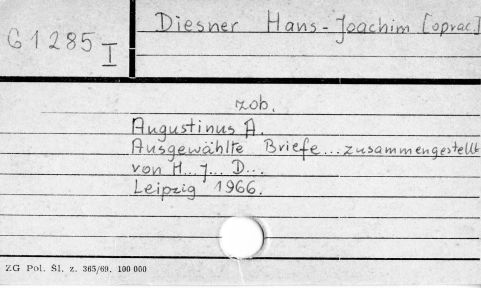 Diesner Hans-Joachim [oprac.]
G 1285 I
zob.
Augustinus A.
Ausgewählte Briefe...zusammengestellt
von H...J... D...
Leipzig 1966.
ZG Pol. Śl. z. 365/69. 100 000